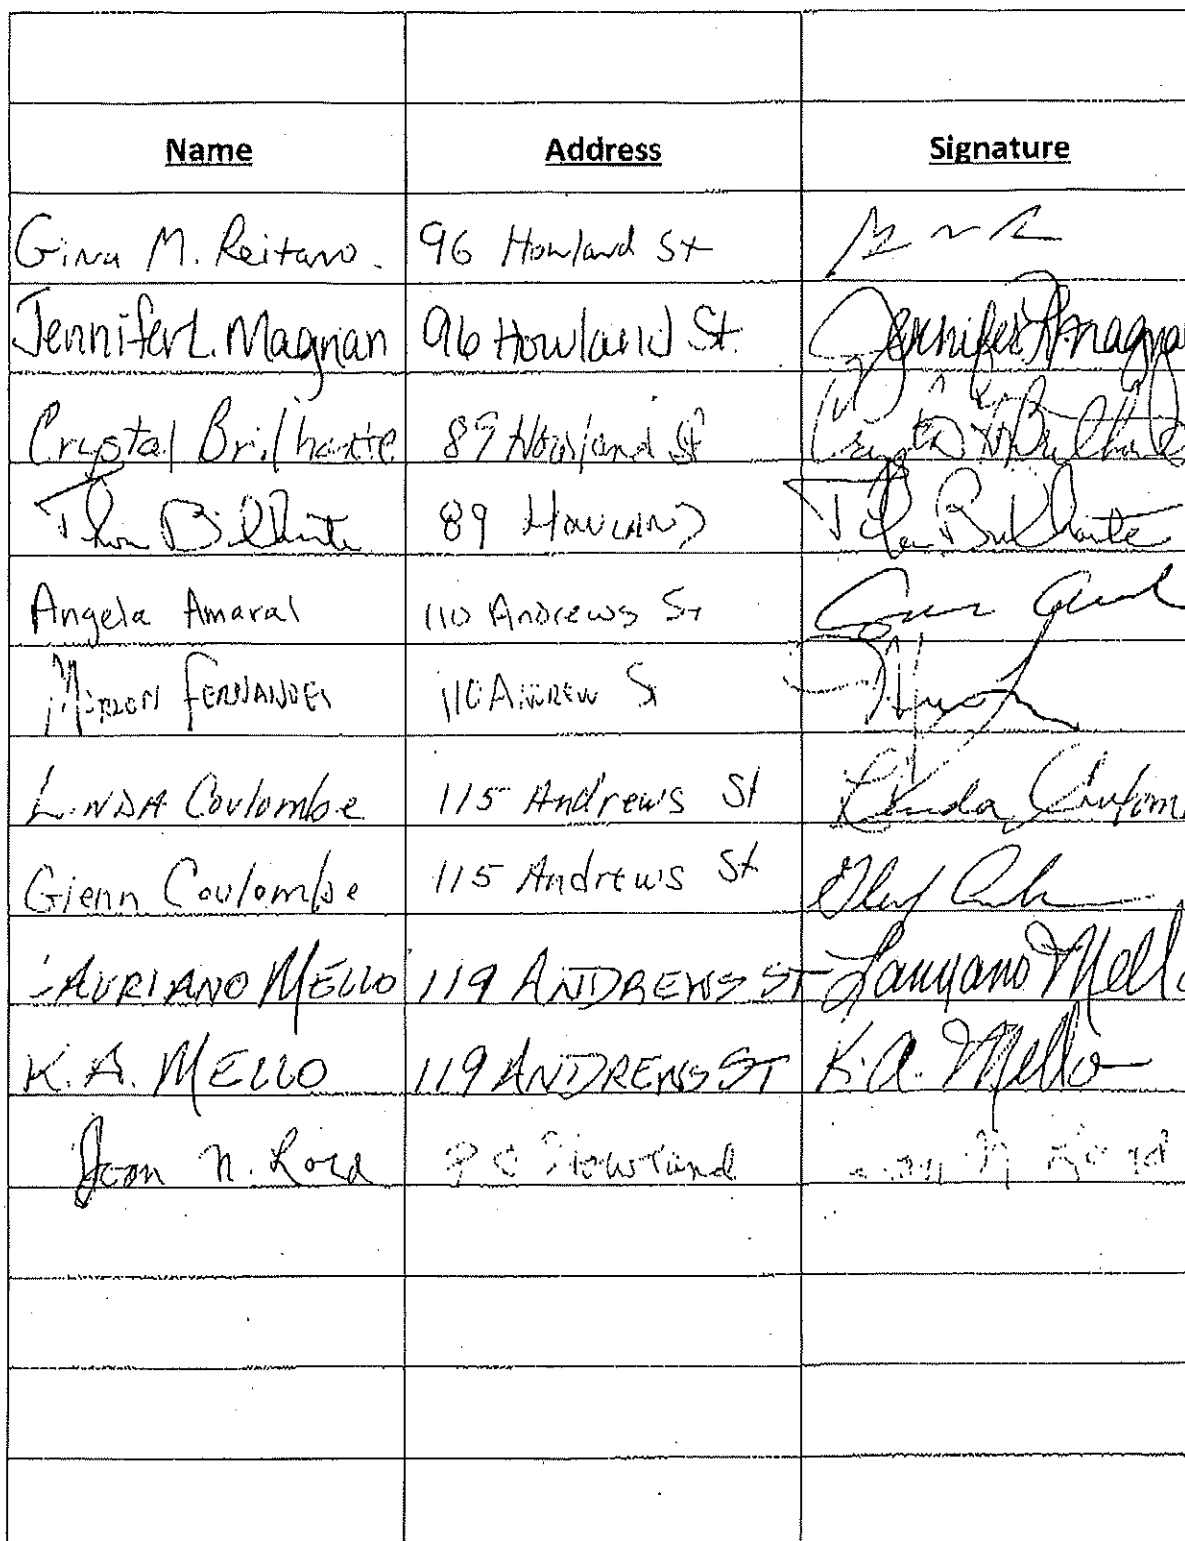 Name Address Signature
Gina M. Reitano. 96 Howland St
Jennifer L. Magnan 96 Howland St. Jennifer Magnan
Crystal Brilhante 89 Howland St Crystal Brilhante
Brilhante 89 Howland Brilhante
Angela Amaral 110 Andrews St
FERNANDES 110 ANDREW St
LINDA Coulombe 115 Andrews St Linda Coulom
Glenn Coulombe 115 Andrews St
LAURIANO MELLO 119 ANDREWS ST Lauriano Mello
K. A. MELLO 119 ANDREWS ST K. A. Mello
Joan N. Lord Howland N Lord